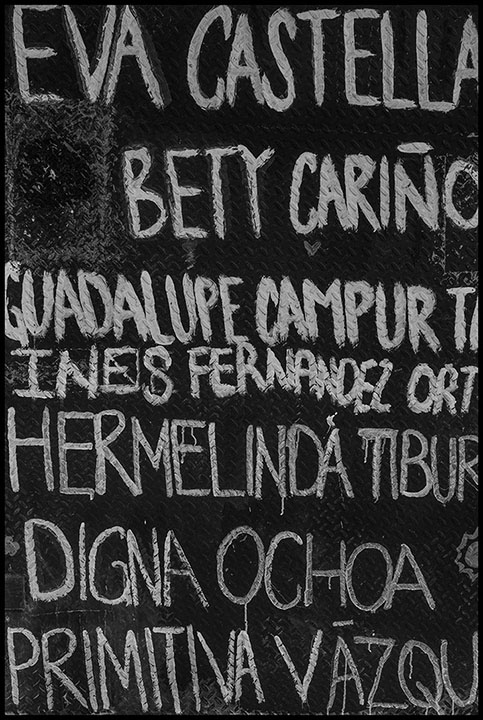 EVA CASTELLA
BETY CARIÑO
GUADALUPE CAMPUR TA
INES FERNANDEZ ORT
HERMELINDA TIBUR
DIGNA OCHOA
PRIMITIVA VÁZQU